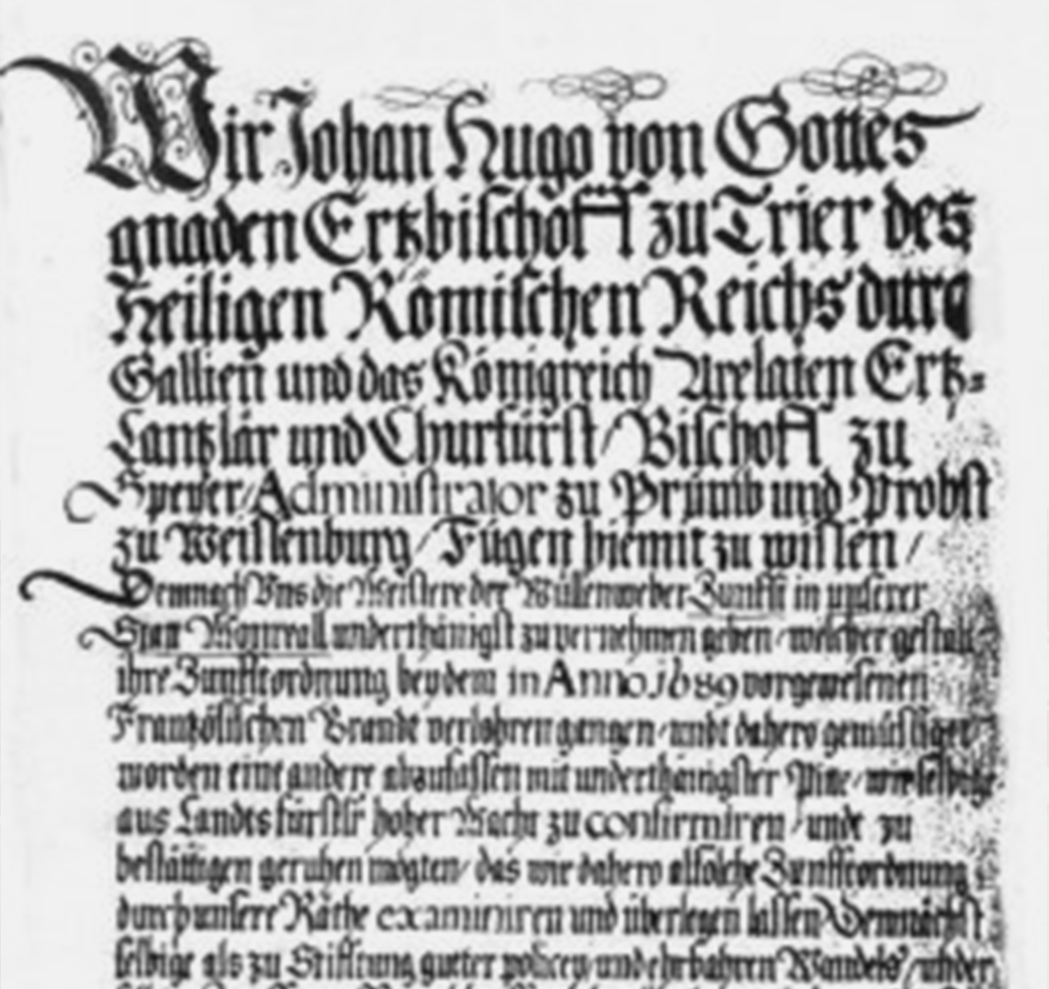 Wir Johan Hugo von Gottes
gnaden Ertzbischoff zu Trier des
Heiligen Römischen Reichs durch
Gallien und das Königreich Arelaten Ertz-
Cantzlar und Churfürst / Bischoff zu
Speyer / Administrator zu Prümb und Probst
zu Weissenburg / Fügen hiemit zu wissen /
Demnach Vns die Meistere der Wüllenweber Zunfft in unserer
Statt Monreall underthänigst zu vernehmen geben / welcher gestalt
ihre Zunfftordnung bey dem in Anno 1689 vorgewesenen
Frantzösischen Brandt verlohren gangen / undt dahero gemüssiget
worden eine andere abzufassen mit underthänigster Pitte / wir selbige
aus Landtsfürstlr hoher Macht zu confirmiren / undt zu
bestättigen geruhen mögten / das wir dahero alsolche Zunfftordnung
durch unsere Räthe examiniren und überlegen lassen / Demnächst
selbige als zu Stifftung gueter policey und ehrbahren Wandels / under